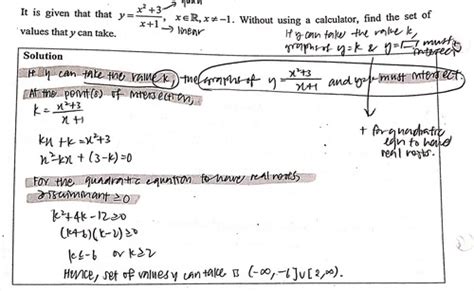 It is given that that y = (x² + 3)/(x + 1), x ∈ ℝ, x ≠ −1. Without using a calculator, find the set of
→ linear
values that y can take.
If y can take the value k,
graphs of y=k & y= must
intersect
Solution
If y can take the value k, the graphs of y = (x²+3)/(x+1) and y=k must intersect.
At the point(s) of intersection,
k = (x²+3)/(x+1)
kx + k = x²+3
x² − kx + (3−k) = 0
→ for quadratic
eqn to have
real roots.
For the quadratic equation to have real roots,
discriminant ≥ 0
k² + 4k − 12 ≥ 0
(k+6)(k−2) ≥ 0
k ≤ −6 or k ≥ 2
Hence, set of values y can take is (−∞, −6] ∪ [2, ∞).